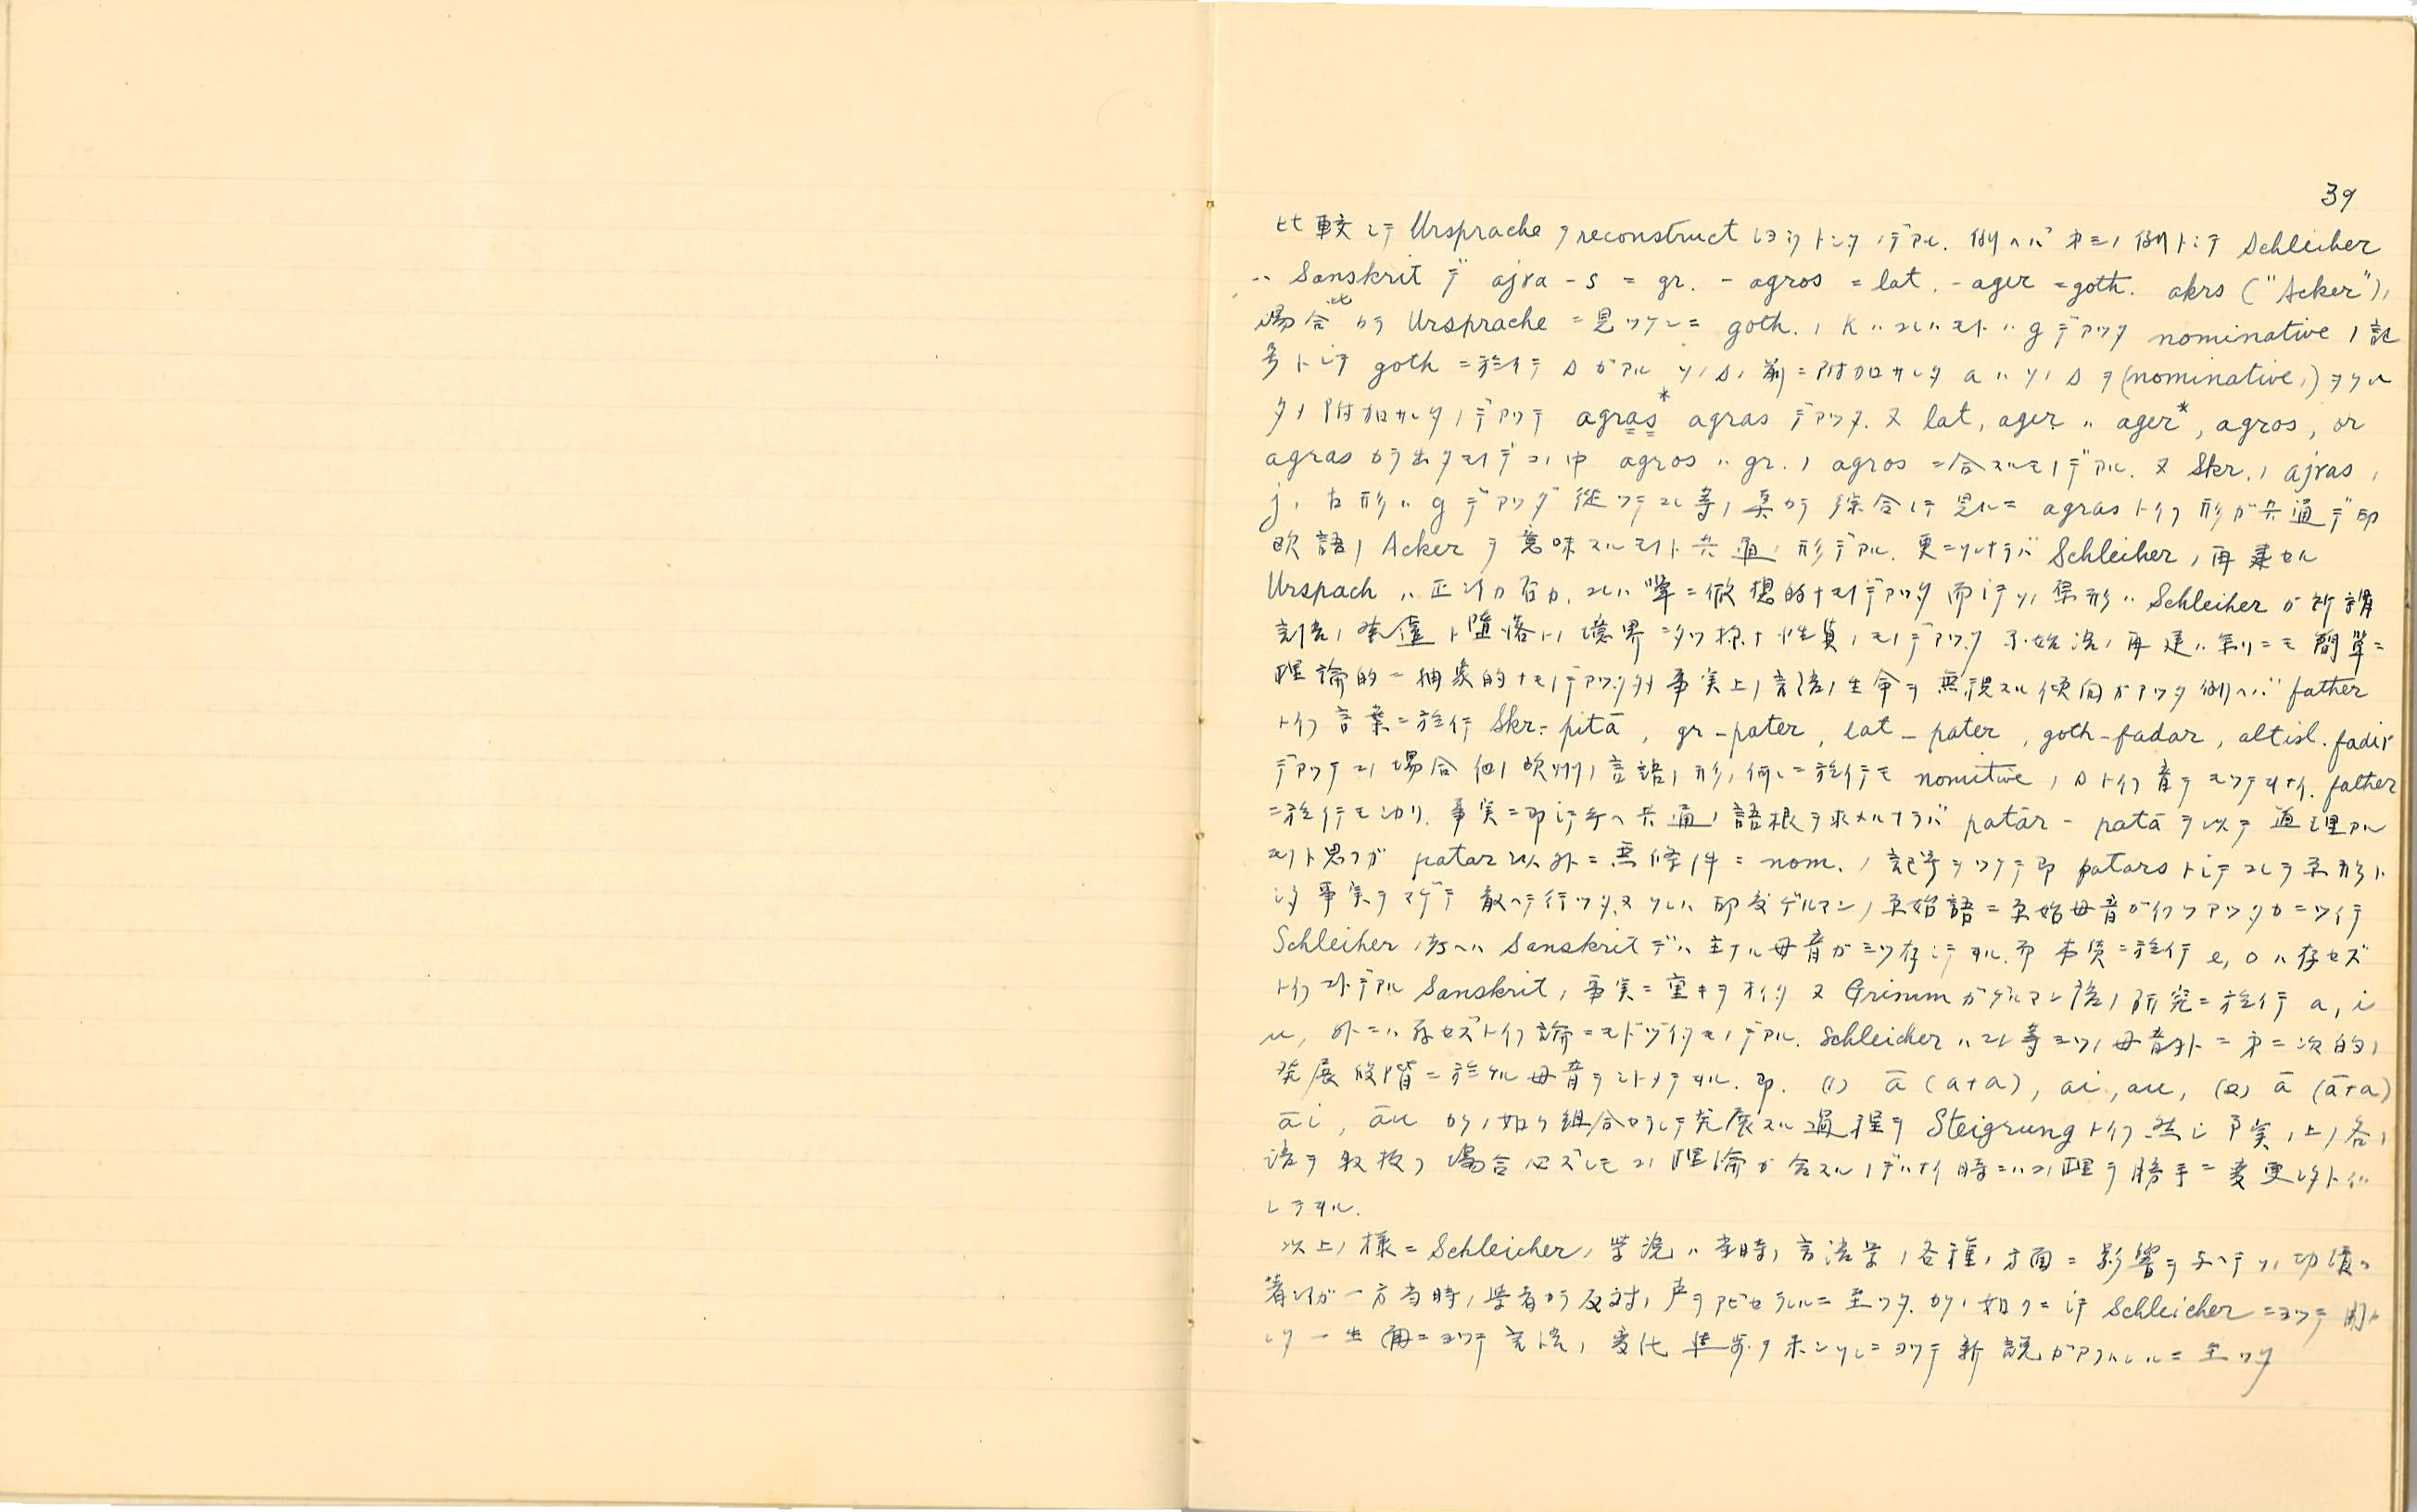 39
比較シテ Ursprache ヲ reconstruct シヨウトシタノデアル. 例ヘバ 第三ノ例トシテ Schleiher
ハ Sanskrit デ ajra - s = gr. - agros = lat. - ager = goth. akrs ("Acker"),
此場合カラ Ursprache ニ見ツケルニ goth. ノ k ハ コレハモト ハ g デアッタ nominative ノ記
号トシテ goth ニ於イテ s ガアル ソノ s ノ前ニ附加サレタ a ハ ソノ s ヲ (nominative ノ)
タメ附加サレタノデアッテ agras* agras デアッタ. 又 lat, ager ハ ager*, agros, or
agras カラ出タモノデコノ中 agros ハ gr. ノ agros ニ合スルモノデアル. 又 Skr. ノ ajras ノ
j ノ古形ハ g デアッタ 従ッテコレ等ノ点カラ綜合シテ見ルニ agras トイフ形ガ共通デ印
欧語ノ Acker ヲ意味スルモノト共通ノ形デアル. 更ニソレナラバ Schleiher ノ再建セル
Urspach ハ正シイカ否カ. コレハ単ニ仮想的ナモノデアッタ 而シテソノ原形ハ Schleiher ガ所謂
言語ノ発達ト堕落トノ境界ニタツ様ナ性質ノモノデアッタ 原始語ノ再建ハ余リニモ簡単ニ
理論的ー抽象的ナモノデアッタタメ事実上ノ言語ノ生命ヲ無視スル傾向ガアッタ 例ヘバ father
トイフ言葉ニ於イテ Skr- pitā, gr - pater, lat - pater, goth - fadar, altisl. fadir
デアッテコノ場合他ノ欧州ノ言語ノ形ノ何レニ於イテモ nomitive ノ s トイフ音ヲモッテヰナイ. father
ニ於イテモ 事実ニ即シテ考ヘ共通ノ語根ヲ求メルナラバ patār - patā ヲ以テ道理アル
モノト思フガ patar 以外ニ無條件ニ nom. ノ記号ヲツケテ即 patars トシテコレヲ原形ト
シタ事実ヲマゲテ敢ヘテ行ッタ. 又ソレハ印度ゲルマンノ原始語ニ原始母音ガイクツアッタカニツイテ
Schleiher ノ考ヘハ Sanskrit デハ主ナル母音ガ三ツ存シテヰル. 即本質ニ於イテ e, o ハ存セズ
トイフコトデアル Sanskrit ノ事実ニ重キヲオイタ 又 Grimm ガゲルマン語ノ研究ニ於イテ a, i
u, 外ニハ存セズトイフ論ニモトヅイタモノデアル. Schleicher ハコレ等三ツノ母音外ニ第二次的ノ
発展段階ニ於ケル母音ヲミトメテヰル. 即. (1) ā (a+a), ai, au, (2) ā (ā+a)
āi, āu カクノ如ク組合カラシテ発展スル過程ヲ Steigrung トイフ然シ事実ノ上ノ各ノ
語ヲ取扱フ場合必ズシモコノ理論ガ合スルノデハナイ時ニハコノ理ヲ勝手ニ変更シタトイハ
レテヰル.
以上ノ様ニ Schleicher ノ学説ハ当時ノ言語学ノ各種ノ方面ニ影響ヲ与ヘテソノ功績ハ
著シイガ一方当時ノ学者カラ反対ノ声ヲアビセラレルニ至ッタ. カクノ如クニシテ Schleicher ニヨッテ
シタ一生面ニヨッテ言語ノ変化進歩ヲ ニヨッテ新説ガアラハレルニ至ッタ